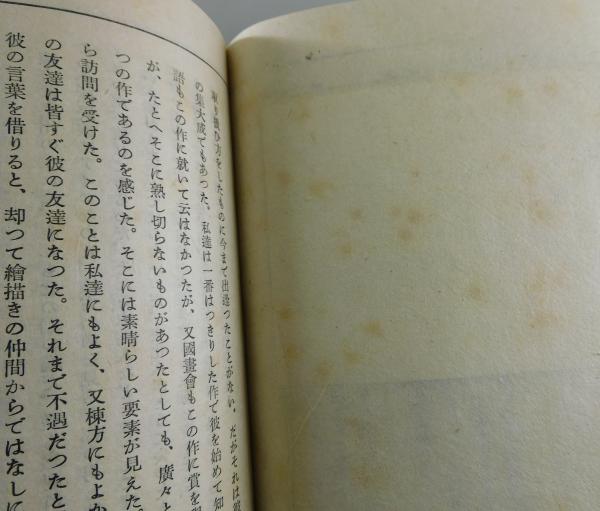 取り扱ひ方をしたものに今まで出逢つたことがない。だがそれは
の集大成でもあつた。私達は一番はつきりした作で彼を始めて知
語もこの作に就いて云はなかつたが、又國畫會もこの作に賞を
が、たとへそこに熟し切らないものがあつたとしても、廣々と
つの作であるのを感じた。そこには素晴らしい要素が見えた
ら訪問を受けた。このことは私達にもよく、又棟方にもよか
の友達は皆すぐ彼の友達になつた。それまで不遇だつたと
彼の言葉を借りると、却つて繪描きの仲間からではなしに